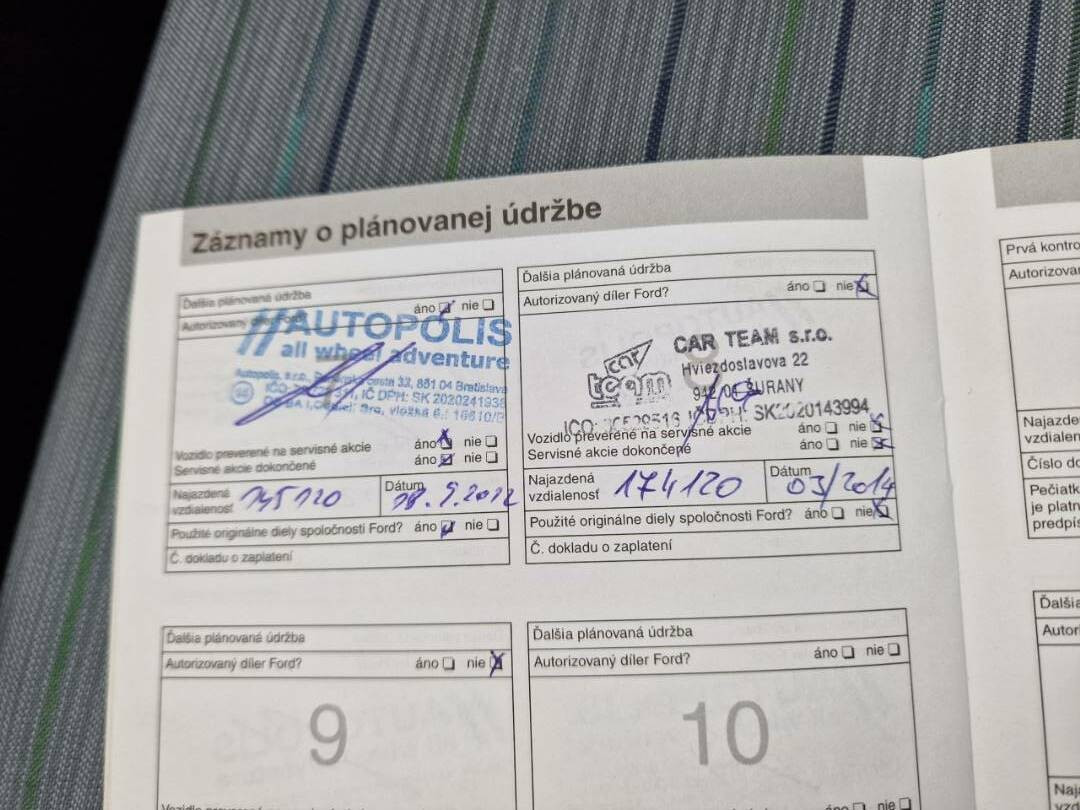 Záznamy o plánovanej údržbe
Ďalšia plánovaná údržba
áno nie
Autorizovaný
//AUTOPOLIS
all wheel adventure
Autopolis, s.r.o., cesta 32, 851 04 Bratislava
IČO: IČ DPH: SK 2020241938
I, Oddiel: Sro, vložka č.:
Vozidlo preverené na servisné akcie áno nie
Servisné akcie dokončené áno nie
Najazdená vzdialenosť 145120
Dátum 18.9.2012
Použité originálne diely spoločnosti Ford? áno nie
Č. dokladu o zaplatení
Ďalšia plánovaná údržba
Autorizovaný díler Ford? áno nie
car team
CAR TEAM s.r.o.
Hviezdoslavova 22
ŠURANY
IČO: SK2020143994
Vozidlo preverené na servisné akcie áno nie
Servisné akcie dokončené áno nie
Najazdená vzdialenosť 174120
Dátum 03/2014
Použité originálne diely spoločnosti Ford? áno nie
Č. dokladu o zaplatení
Ďalšia plánovaná údržba
Autorizovaný díler Ford? áno nie
9
Ďalšia plánovaná údržba
Autorizovaný díler Ford? áno nie
10
áno nie
Prvá kontro
Autorizova
Najazde
vzdialen
Číslo do
Pečiatk
je platn
predpís
Ďalšia
Autor
Naj